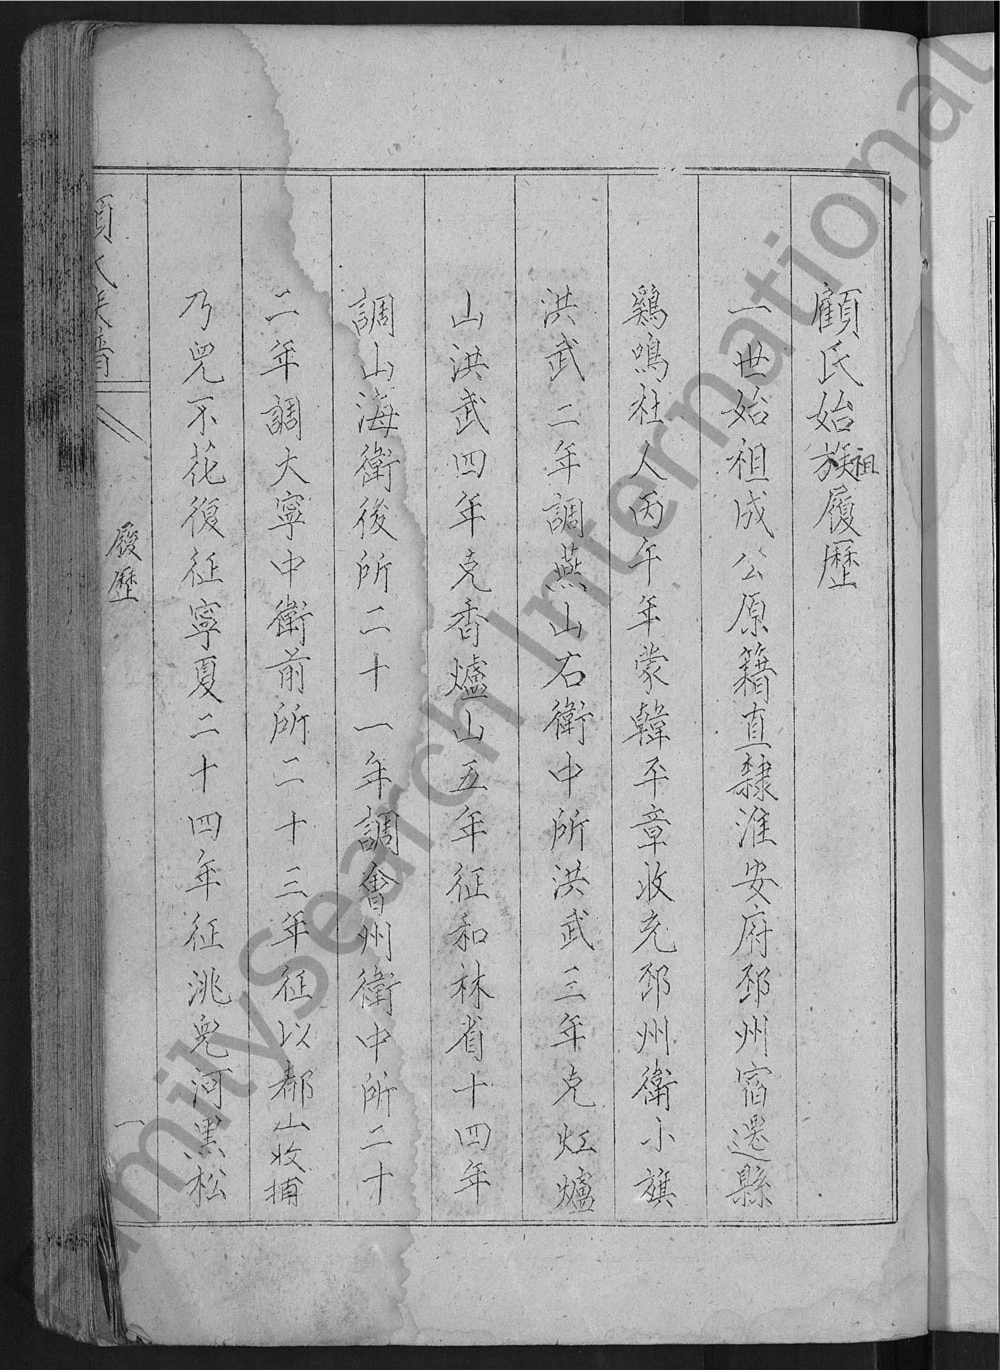 顧氏始族祖履歷
一世始祖成公原籍直隸淮安府邳州宿遷縣
鷄鳴社人丙午年蒙韓平章收充邳州衛小旗
洪武二年調燕山右衛中所洪武三年克灴爐
山洪武四年克香爐山五年征和林省十四年
調山海衛後所二十一年調會州衛中所二十
二年調大寧中衛前所二十三年征以都山收捕
乃兒不花復征寧夏二十四年征洮兒河黑松
顧氏族譜
履歷
一
FamilySearch International